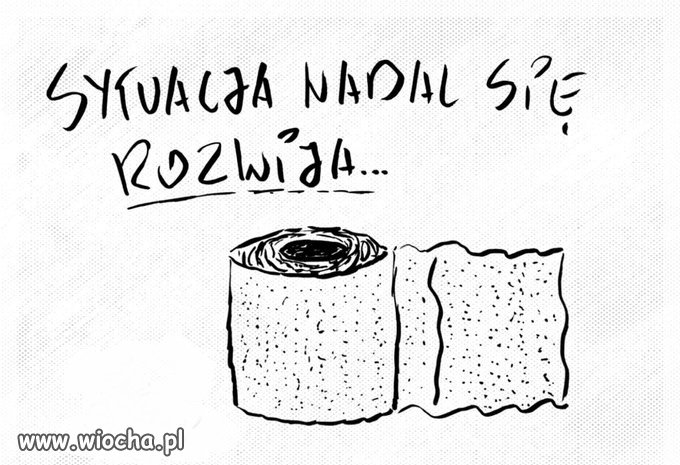 SYTUACJA NADAL SIĘ
ROZWIJA...
www.wiocha.pl